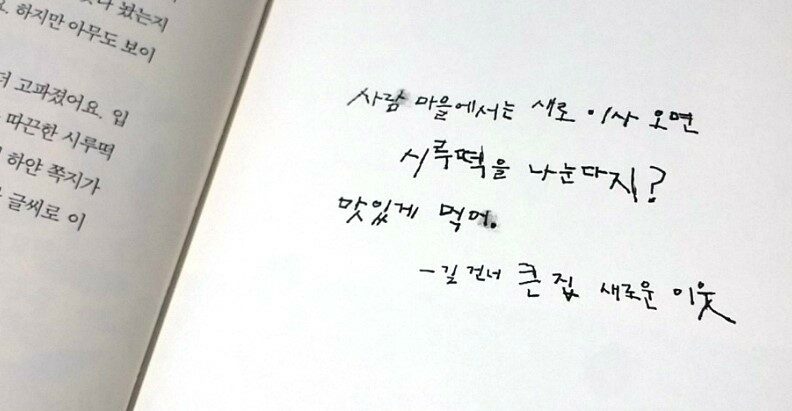 봤는지
하지만 아무도 보이
고파졌어요. 입
따끈한 시루떡
하얀 쪽지가
글씨로 이
사람 마을에서는 새로 이사 오면
시루떡을 나눈다지?
맛있게 먹어.
- 길 건너 큰 집 새로운 이웃